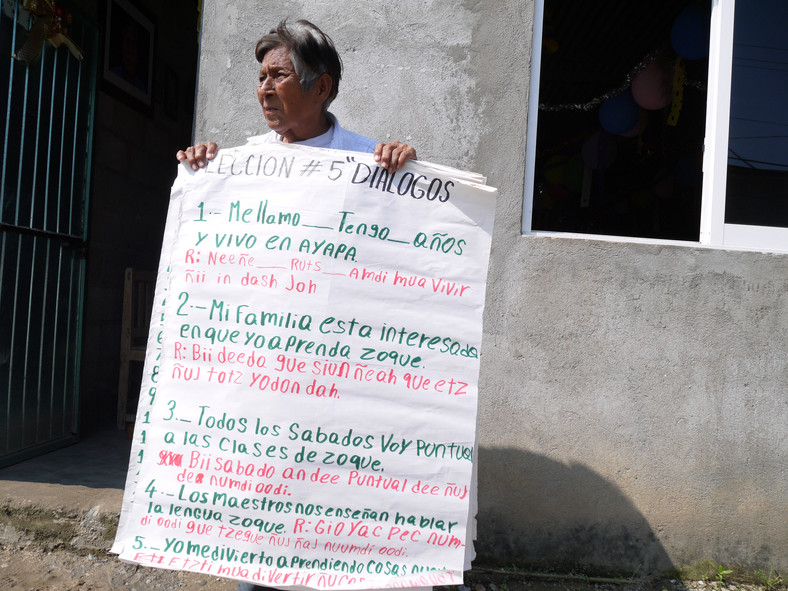 LECCION # 5 "DIALOGOS
1.- Me llamo ___ Tengo __ años
y vivo en AYAPA.
R: Neeñe ___ Ruts __ Amdi mua vivir
ñii in dash Joh
2.- Mi Familia esta interesada
en que yo aprenda zoque.
R: Bii deeda gue siun ñeah que etz
ñus totz yodon dah.
3._ Todos los Sabados Voy Puntual
a las clases de zoque.
Bii sabado an dee Puntual dee ñus
de numdi oodi.
4._ Los Maestros nos enseñan hablar
la lengua zoque. R: Gio yac pec num-
di oodi gue tzegue ñus ñas nuumdi oodi.
5._ Yo me divierto aprendiendo cosas
Etz Etzti mua divertir
6
7
8
9
1
1
1